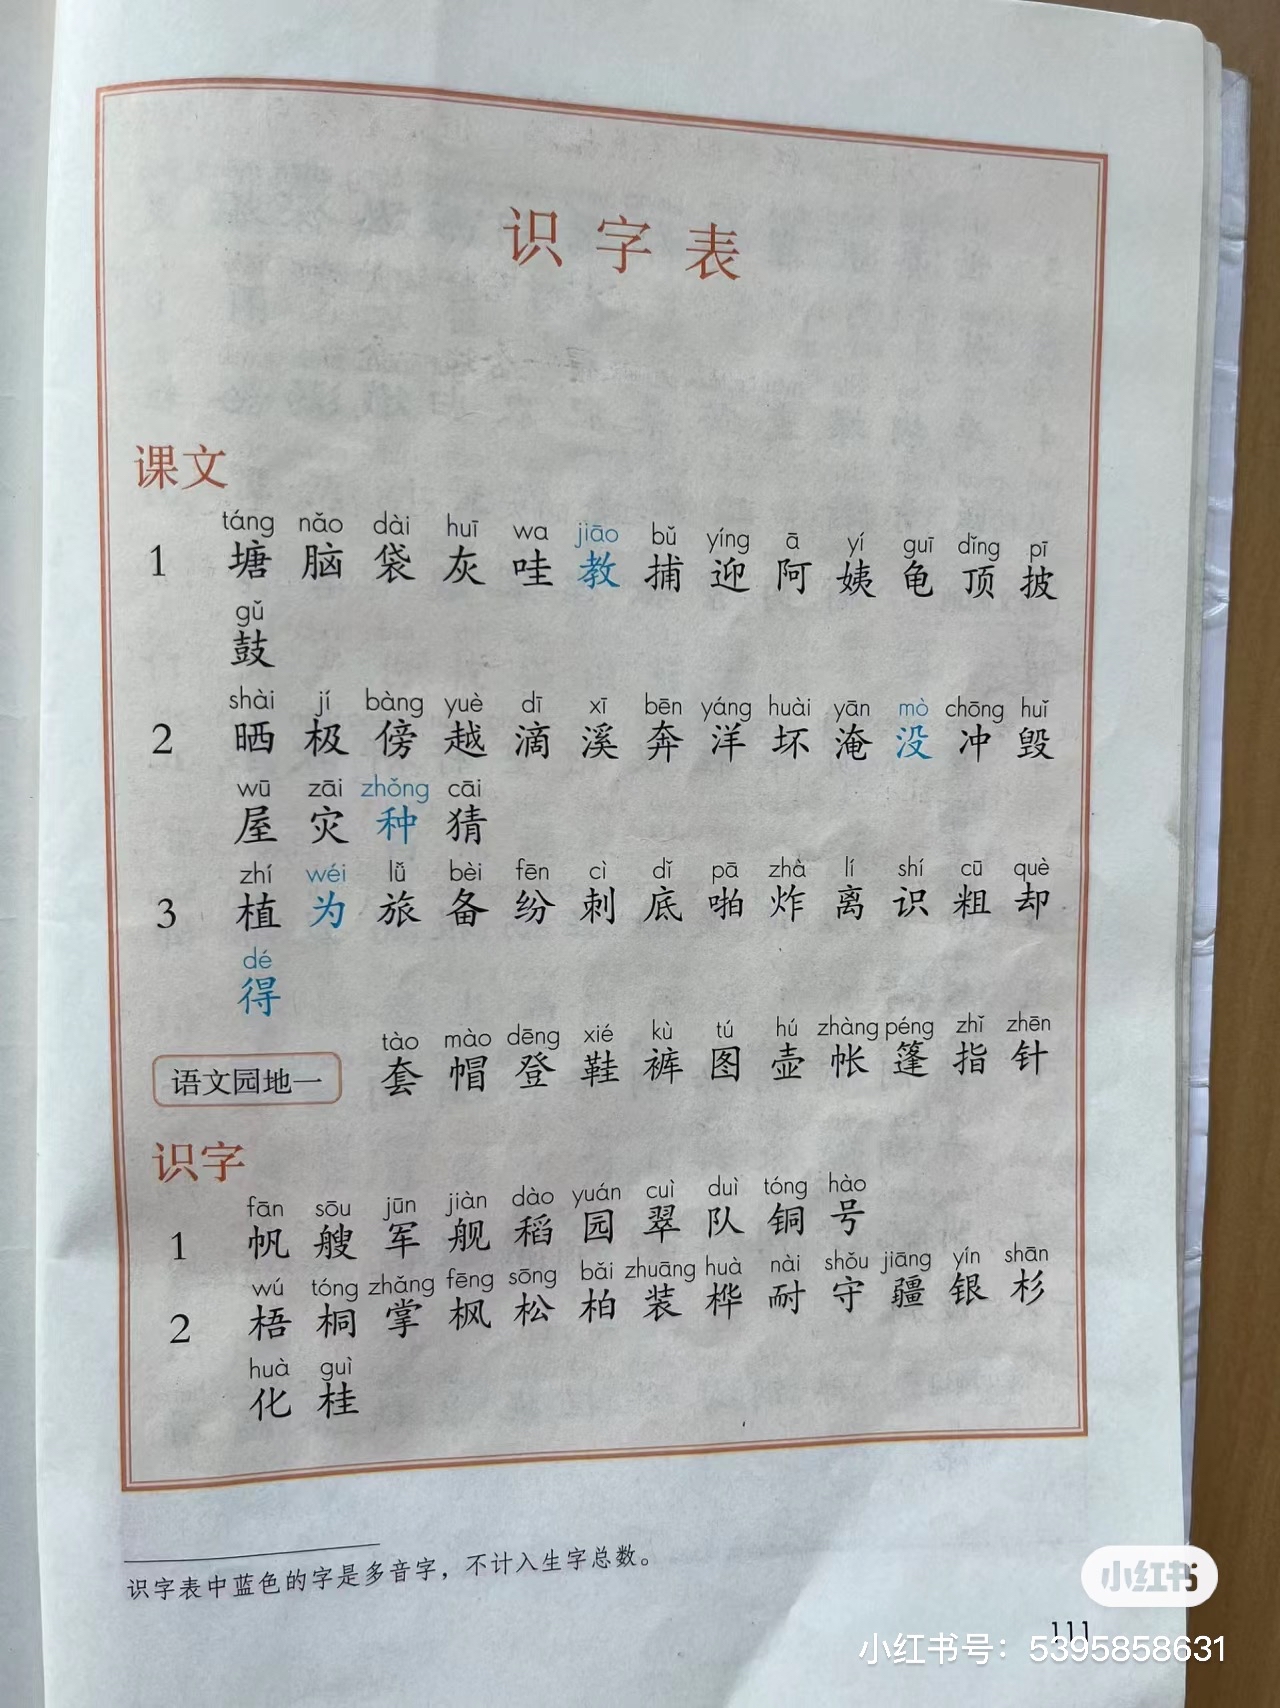 识字表
课文
táng nǎo dài huī wa jiāo bǔ yíng ā yí guī dǐng pī
1 塘 脑 袋 灰 哇 教 捕 迎 阿 姨 龟 顶 披
gǔ
鼓
shài jí bàng yuè dī xī bēn yáng huài yān mò chōng huǐ
2 晒 极 傍 越 滴 溪 奔 洋 坏 淹 没 冲 毁
wū zāi zhǒng cāi
屋 灾 种 猜
zhí wéi lǚ bèi fēn cì dǐ pā zhà lí shí cū què
3 植 为 旅 备 纷 刺 底 啪 炸 离 识 粗 却
dé
得
tào mào dēng xié kù tú hú zhàng péng zhǐ zhēn
语文园地一 套 帽 登 鞋 裤 图 壶 帐 篷 指 针
识字
fān sōu jūn jiàn dào yuán cuì duì tóng hào
1 帆 艘 军 舰 稻 园 翠 队 铜 号
wú tóng zhǎng fēng sōng bǎi zhuāng huà nài shǒu jiāng yín shān
2 梧 桐 掌 枫 松 柏 装 桦 耐 守 疆 银 杉
huà guì
化 桂
识字表中蓝色的字是多音字，不计入生字总数。
小红书
111
小红书号：5395858631